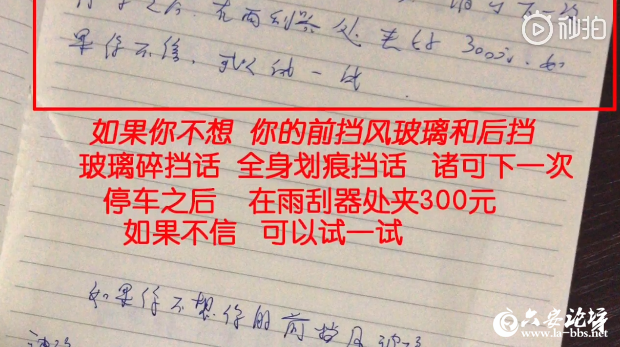 秒拍
之后,在雨刮器处夹钱300元,如
果你不信,可以试一试
如果你不想 你的前挡风玻璃和后挡
玻璃碎挡话 全身划痕挡话 诸可下一次
停车之后 在雨刮器处夹300元
如果不信 可以试一试
如果你不想你的前挡风玻璃
六安论坛
www.la-bbs.net